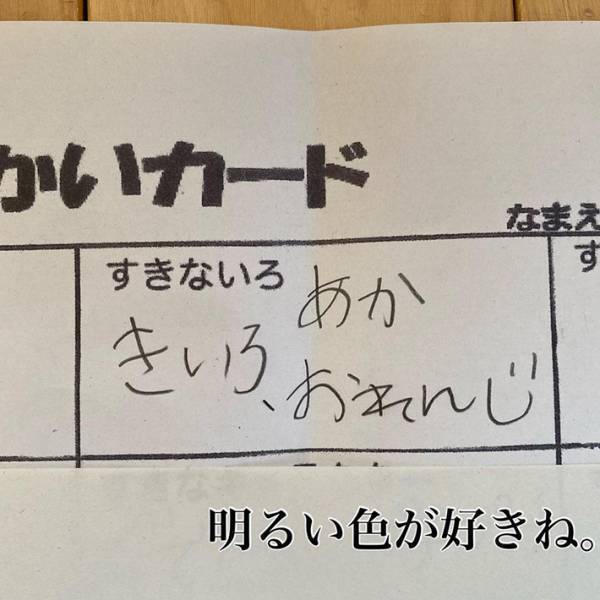 かいカード
なまえ
すきないろ
あか
きいろ、おれんじ
す
明るい色が好きね。